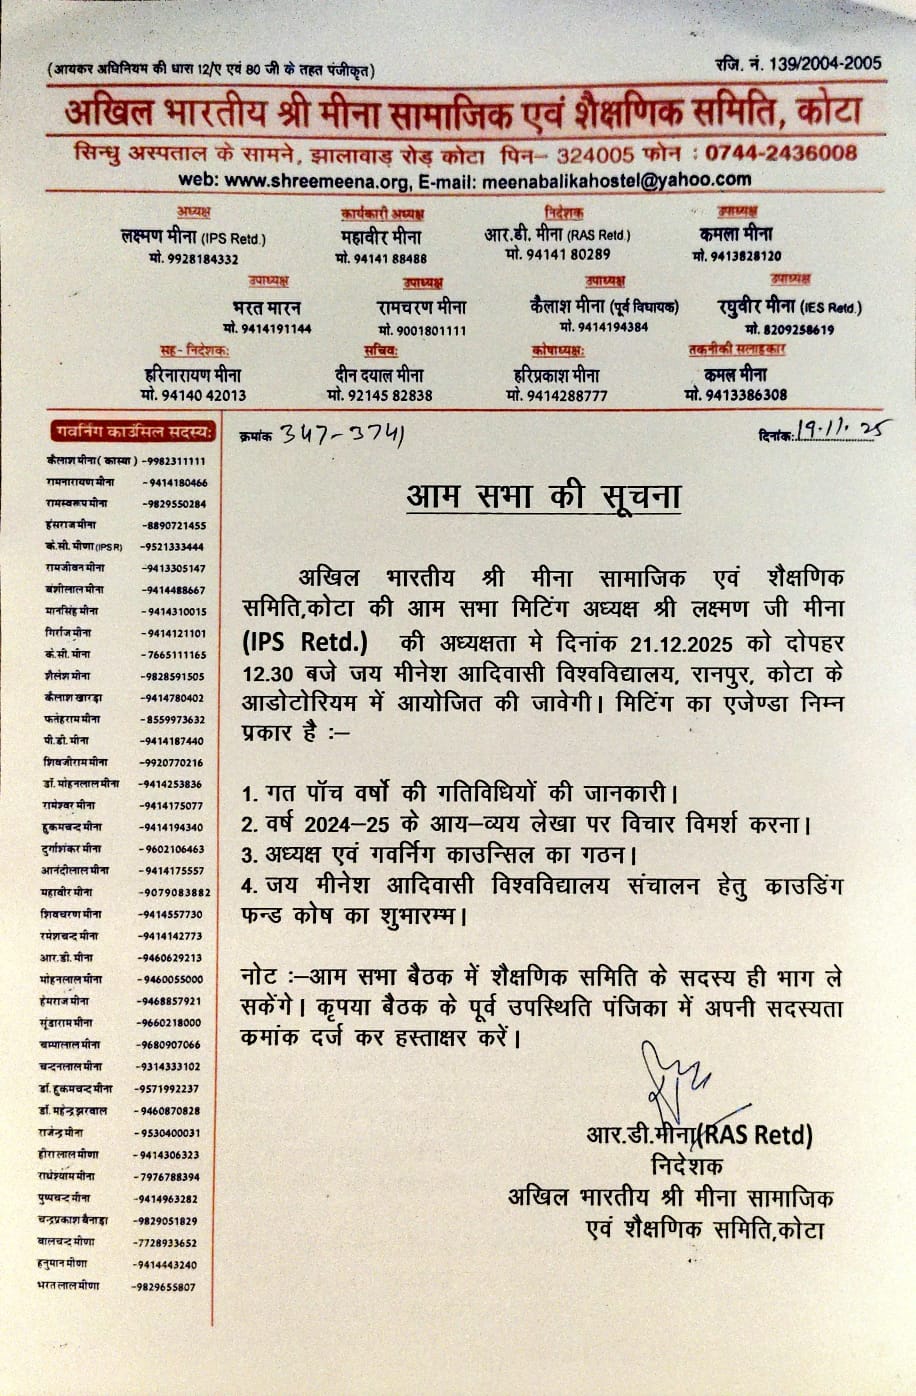 (आयकर अधिनियम की धारा 12/ए एवं 80 जी के तहत पंजीकृत)
रजि. नं. 139/2004-2005
अखिल भारतीय श्री मीना सामाजिक एवं शैक्षणिक समिति, कोटा
सिन्धु अस्पताल के सामने, झालावाड़ रोड़ कोटा पिन– 324005 फोन : 0744-2436008
web: www.shreemeena.org, E-mail: meenabalikahostel@yahoo.com
अध्यक्ष कार्यकारी अध्यक्ष निदेशक उपाध्यक्ष
लक्ष्मण मीना (IPS Retd.) महावीर मीना आर.डी. मीना (RAS Retd.) कमला मीना
मो. 9928184332 मो. 94141 88488 मो. 94141 80289 मो. 9413828120
उपाध्यक्ष उपाध्यक्ष उपाध्यक्ष उपाध्यक्ष
भरत मारन रामचरण मीना कैलाश मीना (पूर्व विधायक) रघुवीर मीना (IES Retd.)
मो. 9414191144 मो. 9001801111 मो. 9414194384 मो. 8209258619
सह- निदेशक: सचिव: कोषाध्यक्ष: तकनीकी सलाहकार
हरिनारायण मीना दीन दयाल मीना हरिप्रकाश मीना कमल मीना
मो. 94140 42013 मो. 92145 82838 मो. 9414288777 मो. 9413386308
गवर्निग काउंसिल सदस्य:
कैलाश मीना ( कास्या ) -9982311111
रामनारायण मीना -9414180466
रामस्वरूप मीना -9829550284
हंसराज मीना -8890721455
के.सी. मीणा (IPS R) -9521333444
रामजीवन मीना -9413305147
बंशीलाल मीना -9414488667
मानसिंह मीना -9414310015
गिर्राज मीना -9414121101
के.सी. मीना -7665111165
शैलेश मीना -9828591505
कैलाश खारड़ा -9414780402
फतेहराम मीना -8559973632
पी.डी. मीना -9414187440
शिवजीराम मीना -9920770216
डॉ. मोहनलाल मीना -9414253836
रामेश्वर मीना -9414175077
हुकमचन्द मीना -9414194340
दुर्गाशंकर मीना -9602106463
आनंदीलाल मीना -9414175557
महावीर मीना -9079083882
शिवचरण मीना -9414557730
रमेशचन्द मीना -9414142773
आर.डी. मीना -9460629213
मोहनलाल मीना -9460055000
हेमराज मीना -9468857921
सूंडाराम मीना -9660218000
चम्पालाल मीना -9680907066
चन्दनलाल मीना -9314333102
डॉ. हुकमचन्द मीना -9571992237
डॉ. महेन्द्र झरवाल -9460870828
राजेन्द्र मीना -9530400031
हीरालाल मीणा -9414306323
राधेश्याम मीना -7976788394
पुष्पचन्द मीना -9414963282
चन्द्रप्रकाश बैनाड़ा -9829051829
बालचन्द मीणा -7728933652
हनुमान मीणा -9414443240
भरत लाल मीणा -9829655807
क्रमांक 347-3741
दिनांक: 19.11.25
आम सभा की सूचना
अखिल भारतीय श्री मीना सामाजिक एवं शैक्षणिक
समिति,कोटा की आम सभा मिटिंग अध्यक्ष श्री लक्ष्मण जी मीना
(IPS Retd.) की अध्यक्षता मे दिनांक 21.12.2025 को दोपहर
12.30 बजे जय मीनेश आदिवासी विश्वविद्यालय, रानपुर, कोटा के
आडोटोरियम में आयोजित की जावेगी। मिटिंग का एजेण्डा निम्न
प्रकार है :–
1. गत पॉच वर्षो की गतिविधियों की जानकारी।
2. वर्ष 2024–25 के आय–व्यय लेखा पर विचार विमर्श करना।
3. अध्यक्ष एवं गवर्निग काउन्सिल का गठन।
4. जय मीनेश आदिवासी विश्वविद्यालय संचालन हेतु काउडिंग
फन्ड कोष का शुभारम्भ।
नोट :–आम सभा बैठक में शैक्षणिक समिति के सदस्य ही भाग ले
सकेंगे। कृपया बैठक के पूर्व उपस्थिति पंजिका में अपनी सदस्यता
कमांक दर्ज कर हस्ताक्षर करें।
आर.डी.मीना(RAS Retd)
निदेशक
अखिल भारतीय श्री मीना सामाजिक
एवं शैक्षणिक समिति,कोटा